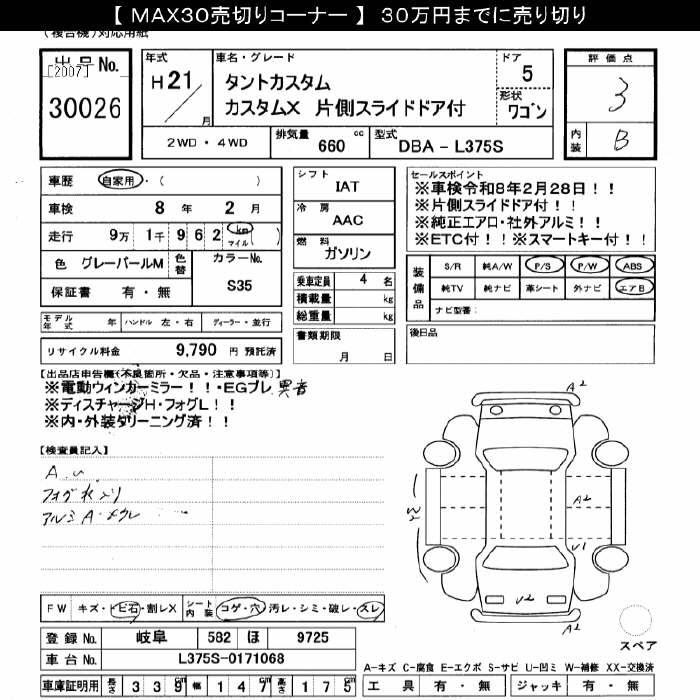 【 MAX30売切りコーナー 】 30万円までに売り切り
(複合機)対応用紙
出品No.
[2007]
30026
年式
H21/
月
車名・グレード
タントカスタム
カスタムX 片側スライドドア付
ドア
5
形状
ワゴン
評価点
3
内装
B
2WD・4WD
排気量
660
cc
型式
DBA－L375S
車歴
自家用・( )
車検
8 年 2 月
走行
9万 1千 9 6 2 km マイル ( )
色
グレーパールM
色替
カラーNo.
S35
保証書 有・無
シフト
IAT
冷房
AAC
燃料
ガソリン
乗車定員 4 名
積載量 kg
総重量 kg
書類期限
月 日
セールスポイント
※車検令和8年2月28日！！
※片側スライドドア付！！
※純正エアロ・社外アルミ！！
※ETC付！！※スマートキー付！！
装備品
S/R 純A/W P/S P/W ABS
純TV 純ナビ 革シート 外ナビ エアB
ナビ型番：
モデル年式 年 ハンドル 左・右 ディーラー・並行
後日品
リサイクル料金 9,790 円 預託済
【出品店申告欄(不良箇所・欠品・注意事項等)】
※電動ウィンカーミラー！！・EGブレ 異音
※ディスチャージH・フォグL！！
※内・外装クリーニング済！！
【検査員記入】
A.U
フォグ水入り
アルミA・メクレ
A2
W2
A2
U1
U2
A2
スペア
FW キズ・トビ石・割レX
シート内装 コゲ・穴 汚レ・シミ・破レ・スレ
登録No. 岐阜 582 ほ 9725
車台No. L375S-0171068
車庫証明用 長さ 3 3 9 cm 幅 1 4 7 cm 高さ 1 7 5 cm
A－キズ C－腐食 E－エクボ S－サビ U－凹ミ W－補修 XX－交換済
工具 有・無 ジャッキ 有・無